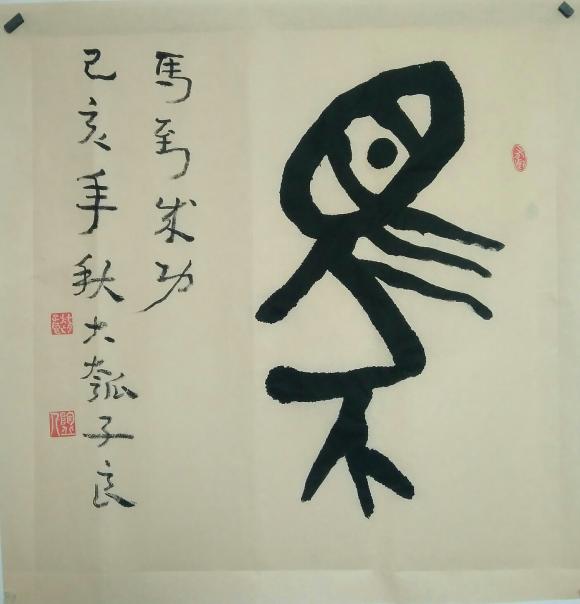 馬
馬到成功
己亥年秋大瓠子良